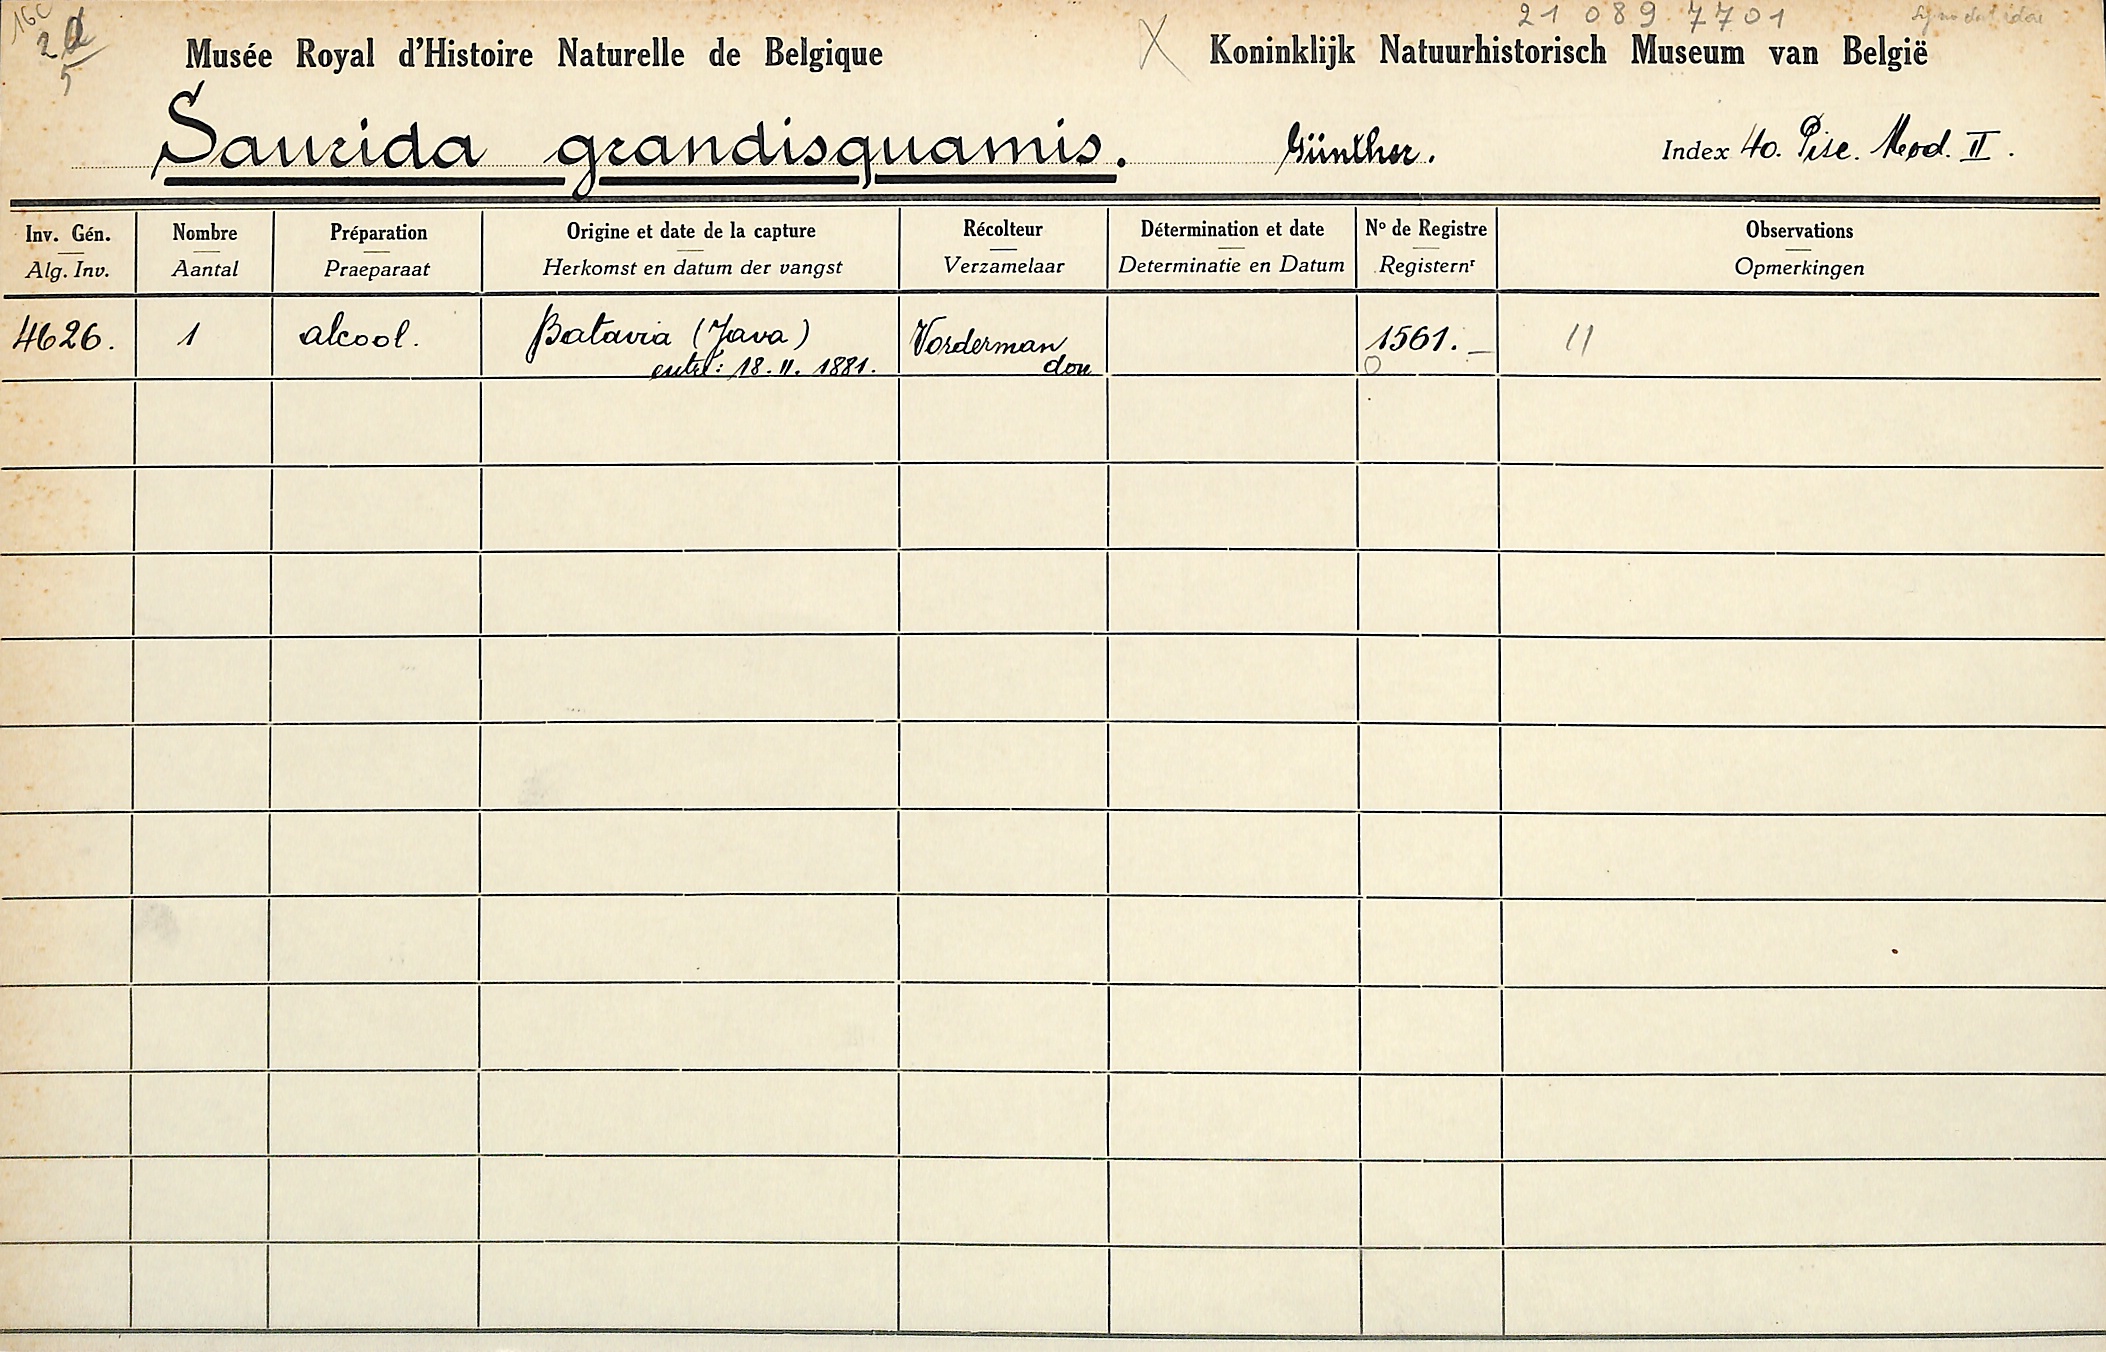 16C
2a
5
21 089 7701
Synodontidae
Musée Royal d'Histoire Naturelle de Belgique
X
Koninklijk Natuurhistorisch Museum van België
Saurida grandisquamis. Günther. Index 40. Pisc. Mod. II.
Inv. Gén. Nombre Préparation Origine et date de la capture Récolteur Détermination et date Nº de Registre Observations
Alg. Inv. Aantal Praeparaat Herkomst en datum der vangst Verzamelaar Determinatie en Datum Registernr Opmerkingen
4626. 1 alcool. Batavia (Java) Vorderman 1561. — 11
entré: 18. II. 1881. don